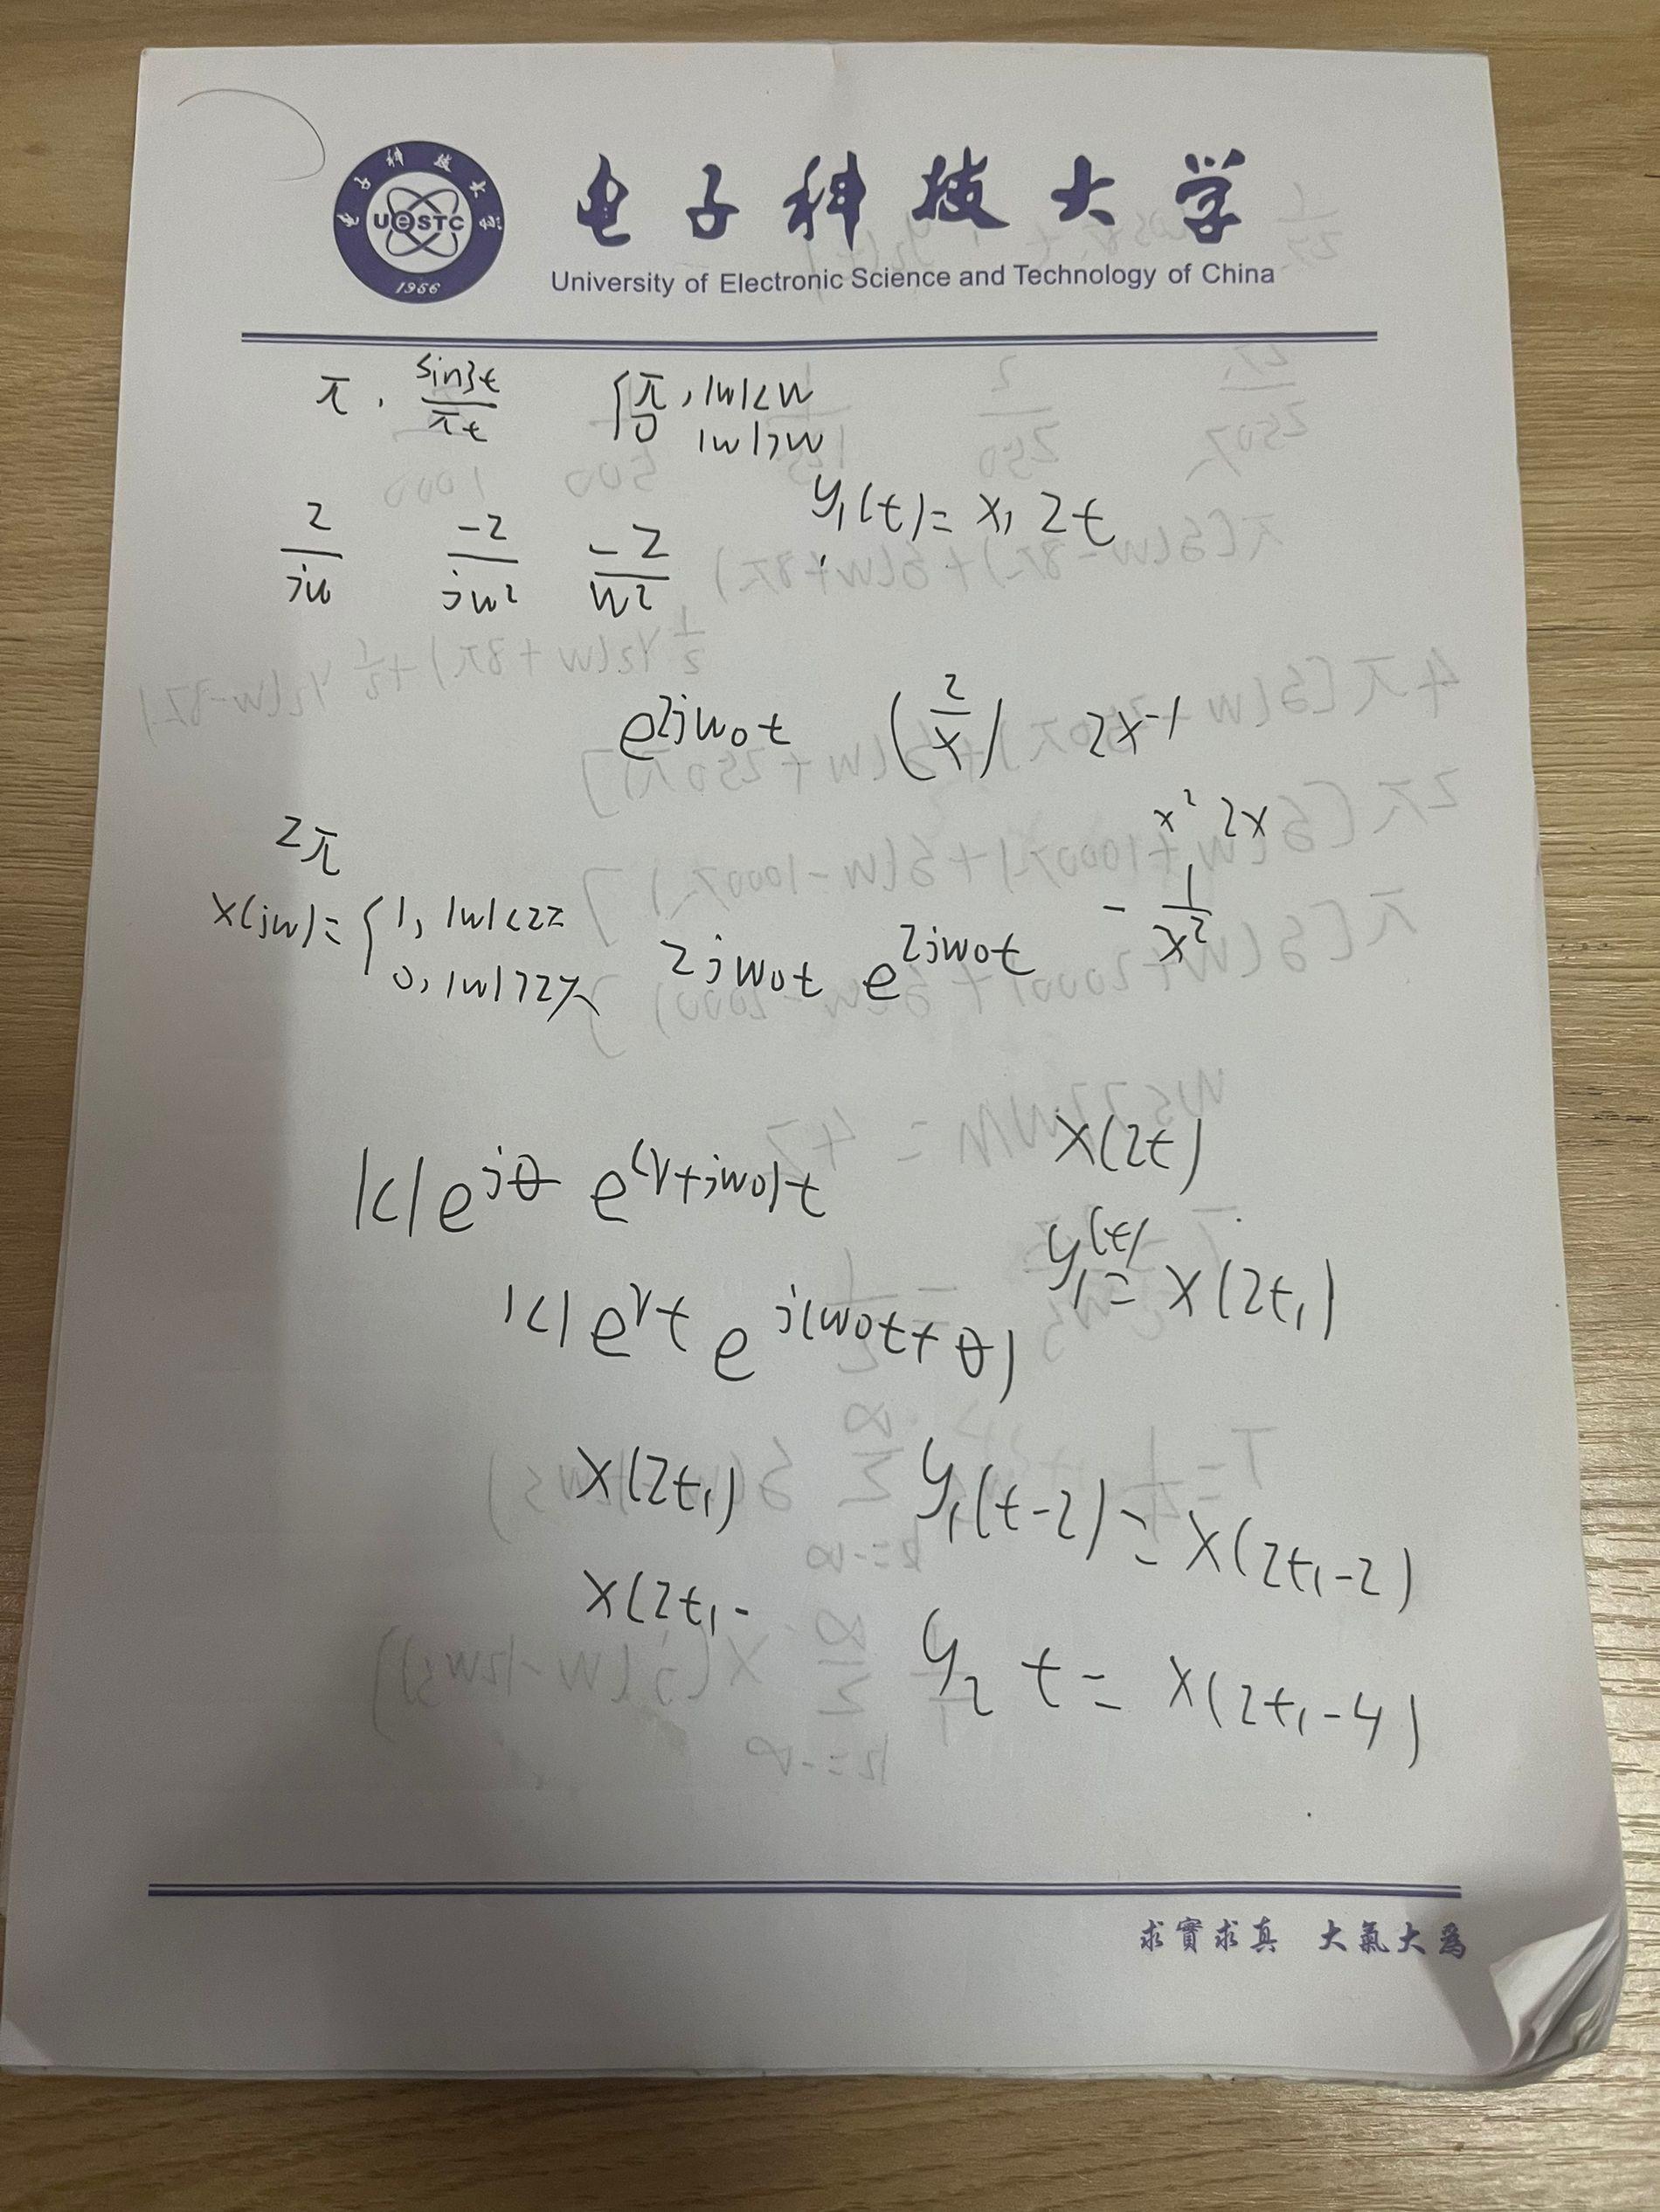 电子科技大学
UESTC
1956
电子科技大学
University of Electronic Science and Technology of China
π · sin3t/πt { π, |w|<W
0 |w|>W
y₁(t) = x₁ 2t
2/jw -2/jw² -2/w²
e^2jw₀t (2/x)' 2x⁻¹
x² 2x
2π
x(jw) = { 1, |w|<2π
0, |w|>2π
2jw₀t e^2jw₀t
- 1/x²
x(2t)
|c|e^jθ e^(r+jw₀)t
y₁(t) = x(2t₁)
|c|e^rt e^j(w₀t+θ)
x(2t₁) y₁(t-2) = x(2t₁-2)
x(2t₁-
y₂ t = x(2t₁-4)
求實求真 大氣大為